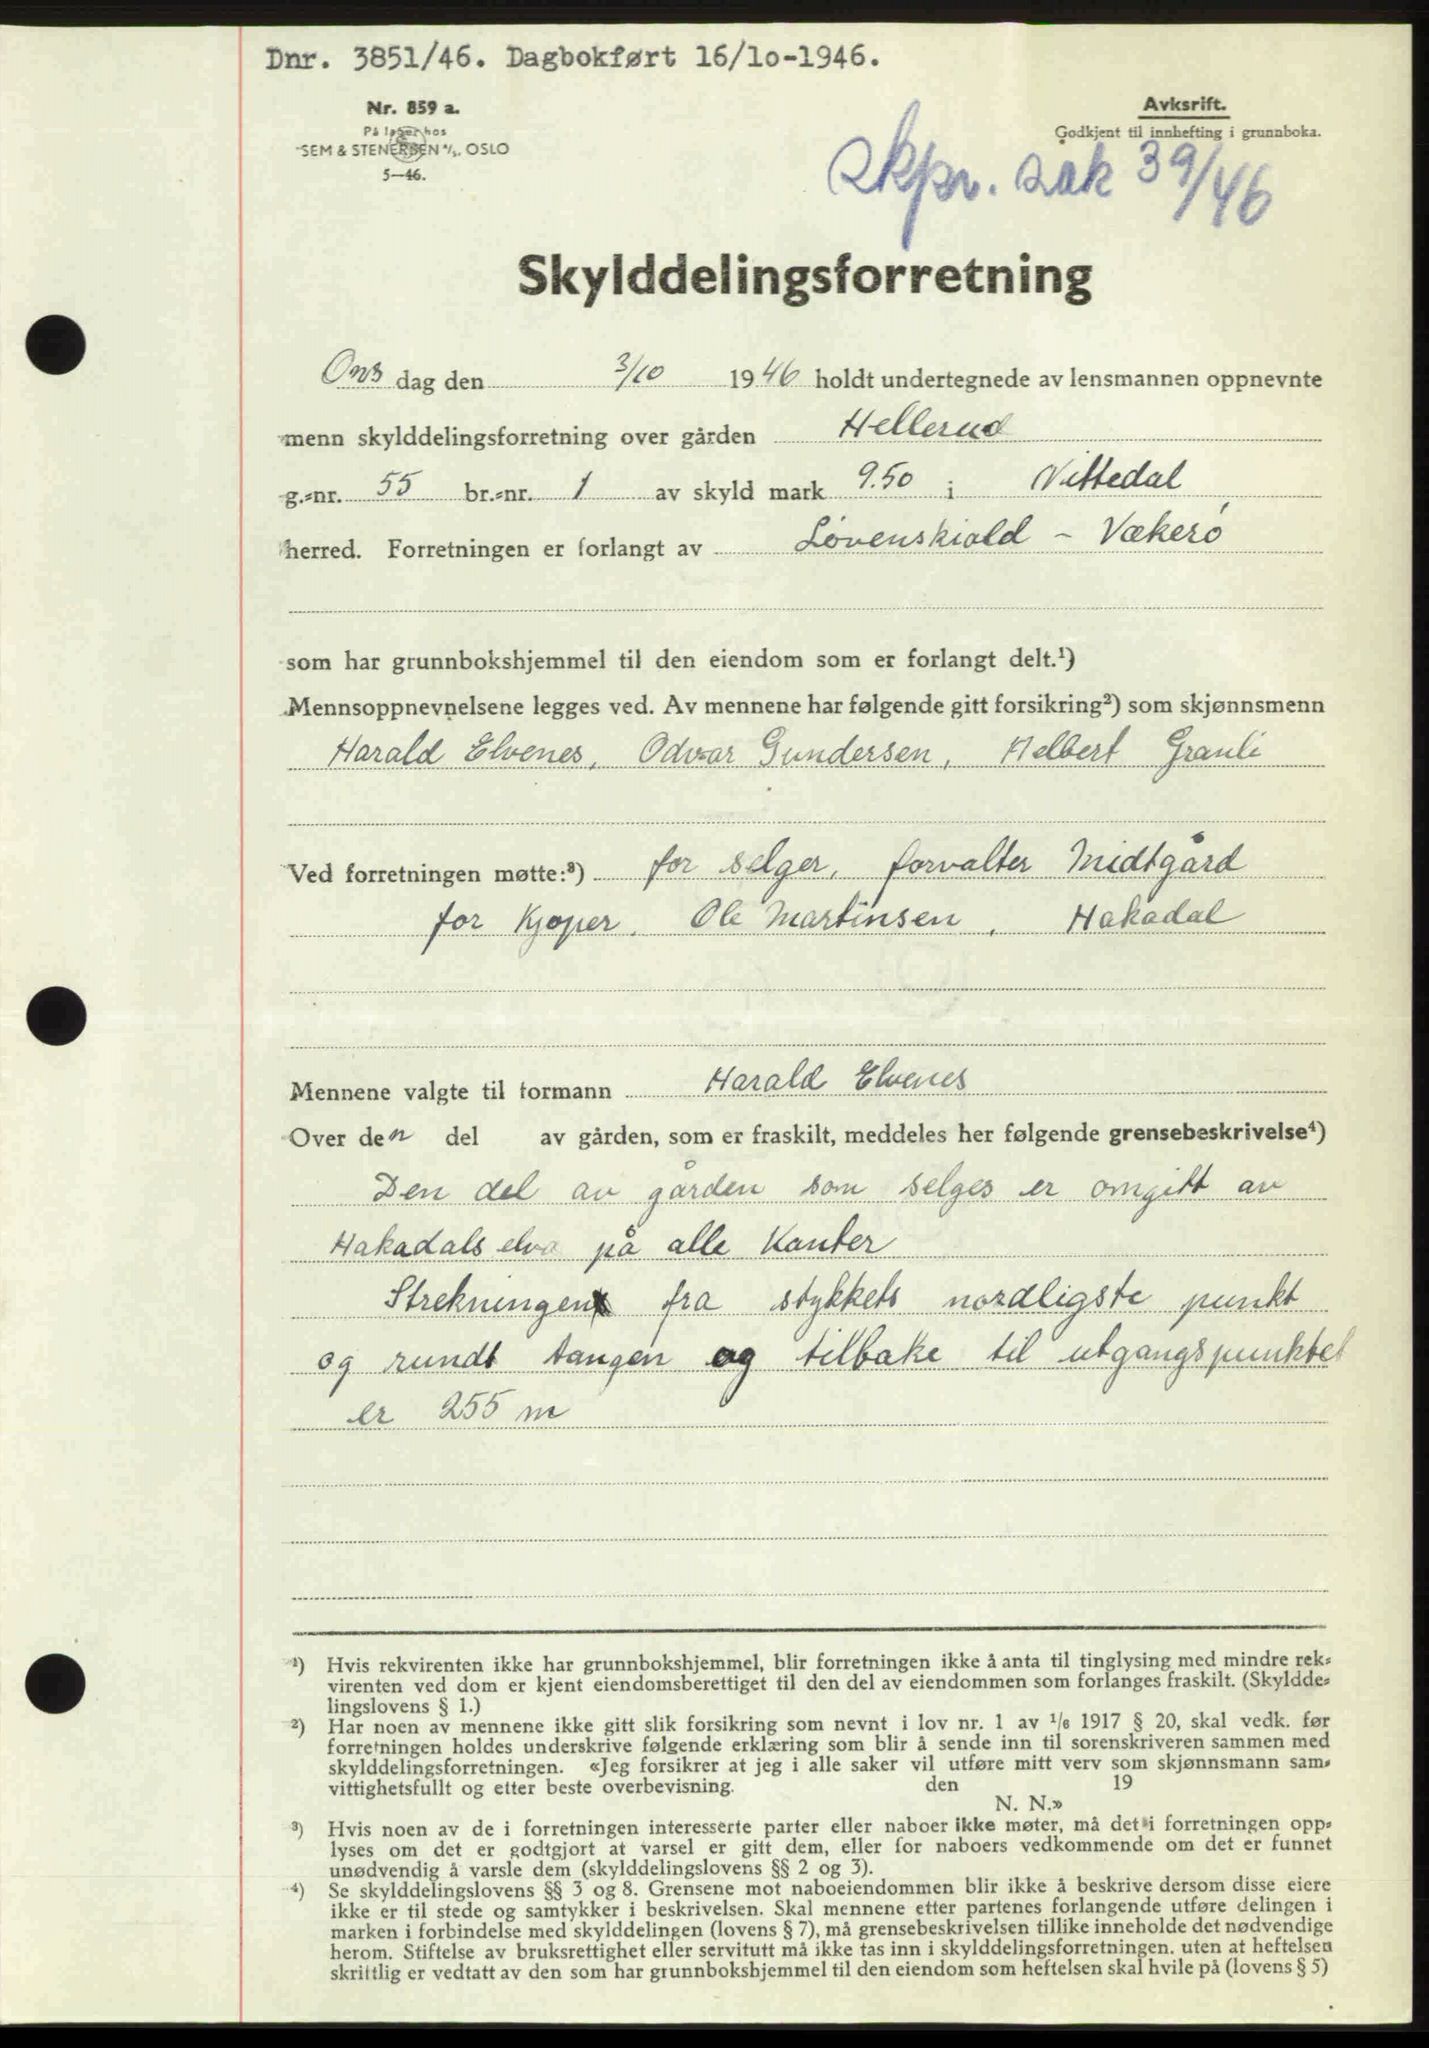 Dnr. 3851/46. Dagbokført 16/10-1946.
Nr. 859 a.
På lager hos
SEM & STENERSEN A/S, OSLO
5-46.
Avksrift.
Godkjent til innhefting i grunnboka.
skpr. sak 39/46
Skylddelingsforretning
Ons dag den 3/10 1946 holdt undertegnede av lensmannen oppnevnte
menn skylddelingsforretning over gården Hellerud
g.=nr. 55 br.=nr. 1 av skyld mark 9.50 i Nittedal
herred. Forretningen er forlangt av Løvenskiold - Vækerø
som har grunnbokshjemmel til den eiendom som er forlangt delt.¹)
Mennsoppnevnelsene legges ved. Av mennene har følgende gitt forsikring²) som skjønnsmenn
Harald Elvenes, Odvar Gundersen, Helbert Granli
Ved forretningen møtte:³) for selger, forvalter Midtgård
for Kjøper. Ole Martinsen, Hakadal
Mennene valgte til formann Harald Elvenes
Over den del av gården, som er fraskilt, meddeles her følgende grensebeskrivelse⁴)
Den del av gården som selges er omgitt av
Hakadals elva på alle Kanter
Strekningen fra stykkets nordligste punkt
og rundt tangen og tilbake til utgangspunktet
er 255 m
¹) Hvis rekvirenten ikke har grunnbokshjemmel, blir forretningen ikke å anta til tinglysing med mindre rek=
virenten ved dom er kjent eiendomsberettiget til den del av eiendommen som forlanges fraskilt. (Skyldde=
lingslovens § 1.)
²) Har noen av mennene ikke gitt slik forsikring som nevnt i lov nr. 1 av 1/6 1917 § 20, skal vedk. før
forretningen holdes underskrive følgende erklæring som blir å sende inn til sorenskriveren sammen med
skylddelingsforretningen. «Jeg forsikrer at jeg i alle saker vil utføre mitt verv som skjønnsmann sam=
vittighetsfullt og etter beste overbevisning. den 19
N. N.»
³) Hvis noen av de i forretningen interesserte parter eller naboer ikke møter, må det i forretningen opp=
lyses om det er godtgjort at varsel er gitt dem, eller for naboers vedkommende om det er funnet
unødvendig å varsle dem (skylddelingslovens §§ 2 og 3).
⁴) Se skylddelingslovens §§ 3 og 8. Grensene mot naboeiendommen blir ikke å beskrive dersom disse eiere
ikke er til stede og samtykker i beskrivelsen. Skal mennene etter partenes forlangende utføre delingen i
marken i forbindelse med skylddelingen (lovens § 7), må grensebeskrivelsen tillike inneholde det nødvendige
herom. Stiftelse av bruksrettighet eller servitutt må ikke tas inn i skylddelingsforretningen. uten at heftelsen
skriftlig er vedtatt av den som har grunnbokshjemmel til den eiendom som heftelsen skal hvile på (lovens § 5)